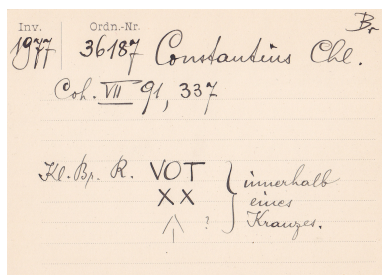 Br
Inv. Ordn.-Nr.
1977 36187 Constantius Chl.
Coh. VII 91, 337
Kl. Br. R. VOT innerhalb
XX eines
? Kranzes.